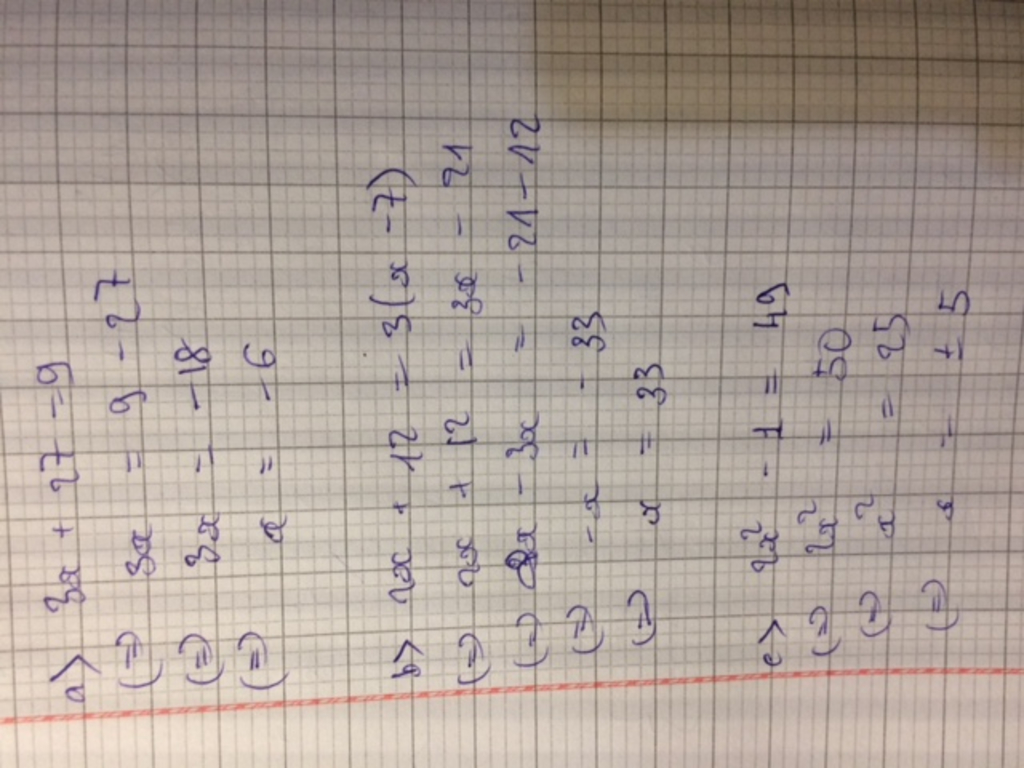 a> 3x + 27 = 9
(=) 3x = 9 - 27
(=) 3x = -18
(=) x = -6
b> 2x + 12 = 3(x - 7)
(=) 2x + 12 = 3x - 21
(=) 2x - 3x = - 21 - 12
(=) - x = - 33
(=) x = 33
c> 2x² - 1 = 49
(=) 2x² = 50
(=) x² = 25
(=) x = ± 5